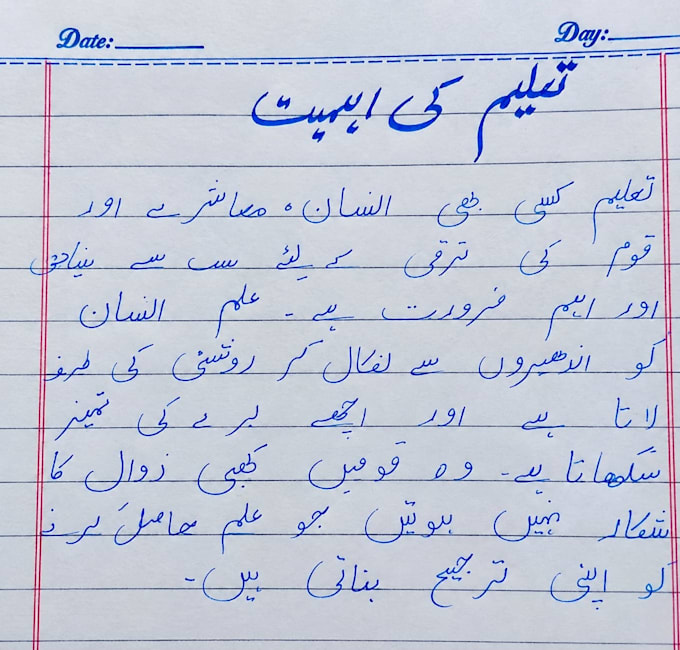 Date: Day:
تعلیم کی اہمیت
تعلیم کسی بھی انسان، معاشرے اور
قوم کی ترقی کے لئے سب سے بنیادی
اور اہم ضرورت ہے۔ علم انسان
کو اندھیروں سے نکال کر روشنی کی طرف
لاتا ہے اور اچھے برے کی تمیز
سکھاتا ہے۔ وہ قومیں کبھی زوال کا
شکار نہیں ہوتیں جو علم حاصل کرنے
کو اپنی ترجیح بناتی ہیں۔